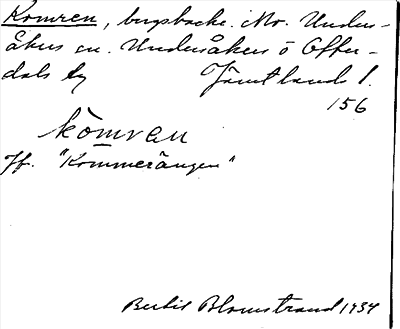 Komren, bergsbacke. No. Under-
åkers sn. Undersåkers o Offer-
dals tg Jämtlands l.
156
kòmren
Jf. "Kommerängen"
Bertil Blomstrand 1934